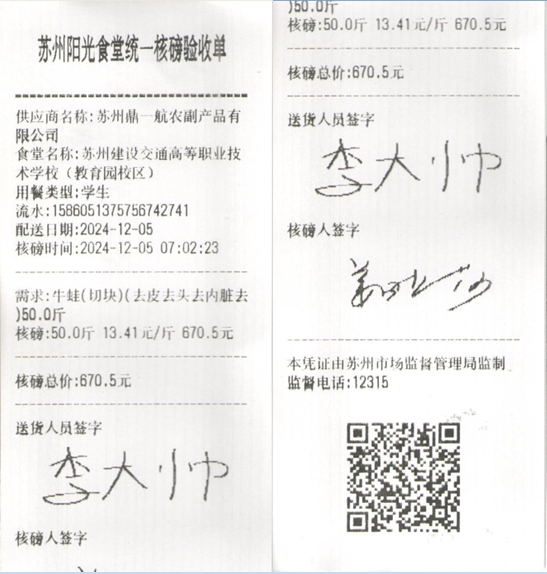 苏州阳光食堂统一核磅验收单
供应商名称:苏州鼎一航农副产品有
限公司
食堂名称:苏州建设交通高等职业技
术学校（教育园校区）
用餐类型:学生
流水:1586051375756742741
配送日期:2024-12-05
核磅时间:2024-12-05 07:02:23
需求:牛蛙(切块)(去皮去头去内脏去
)50.0斤
核磅:50.0斤 13.41元/斤 670.5元
核磅总价:670.5元
送货人员签字
李大帅
核磅人签字
)50.0斤
核磅:50.0斤 13.41元/斤 670.5元
核磅总价:670.5元
送货人员签字
李大帅
核磅人签字
本凭证由苏州市场监督管理局监制
监督电话:12315